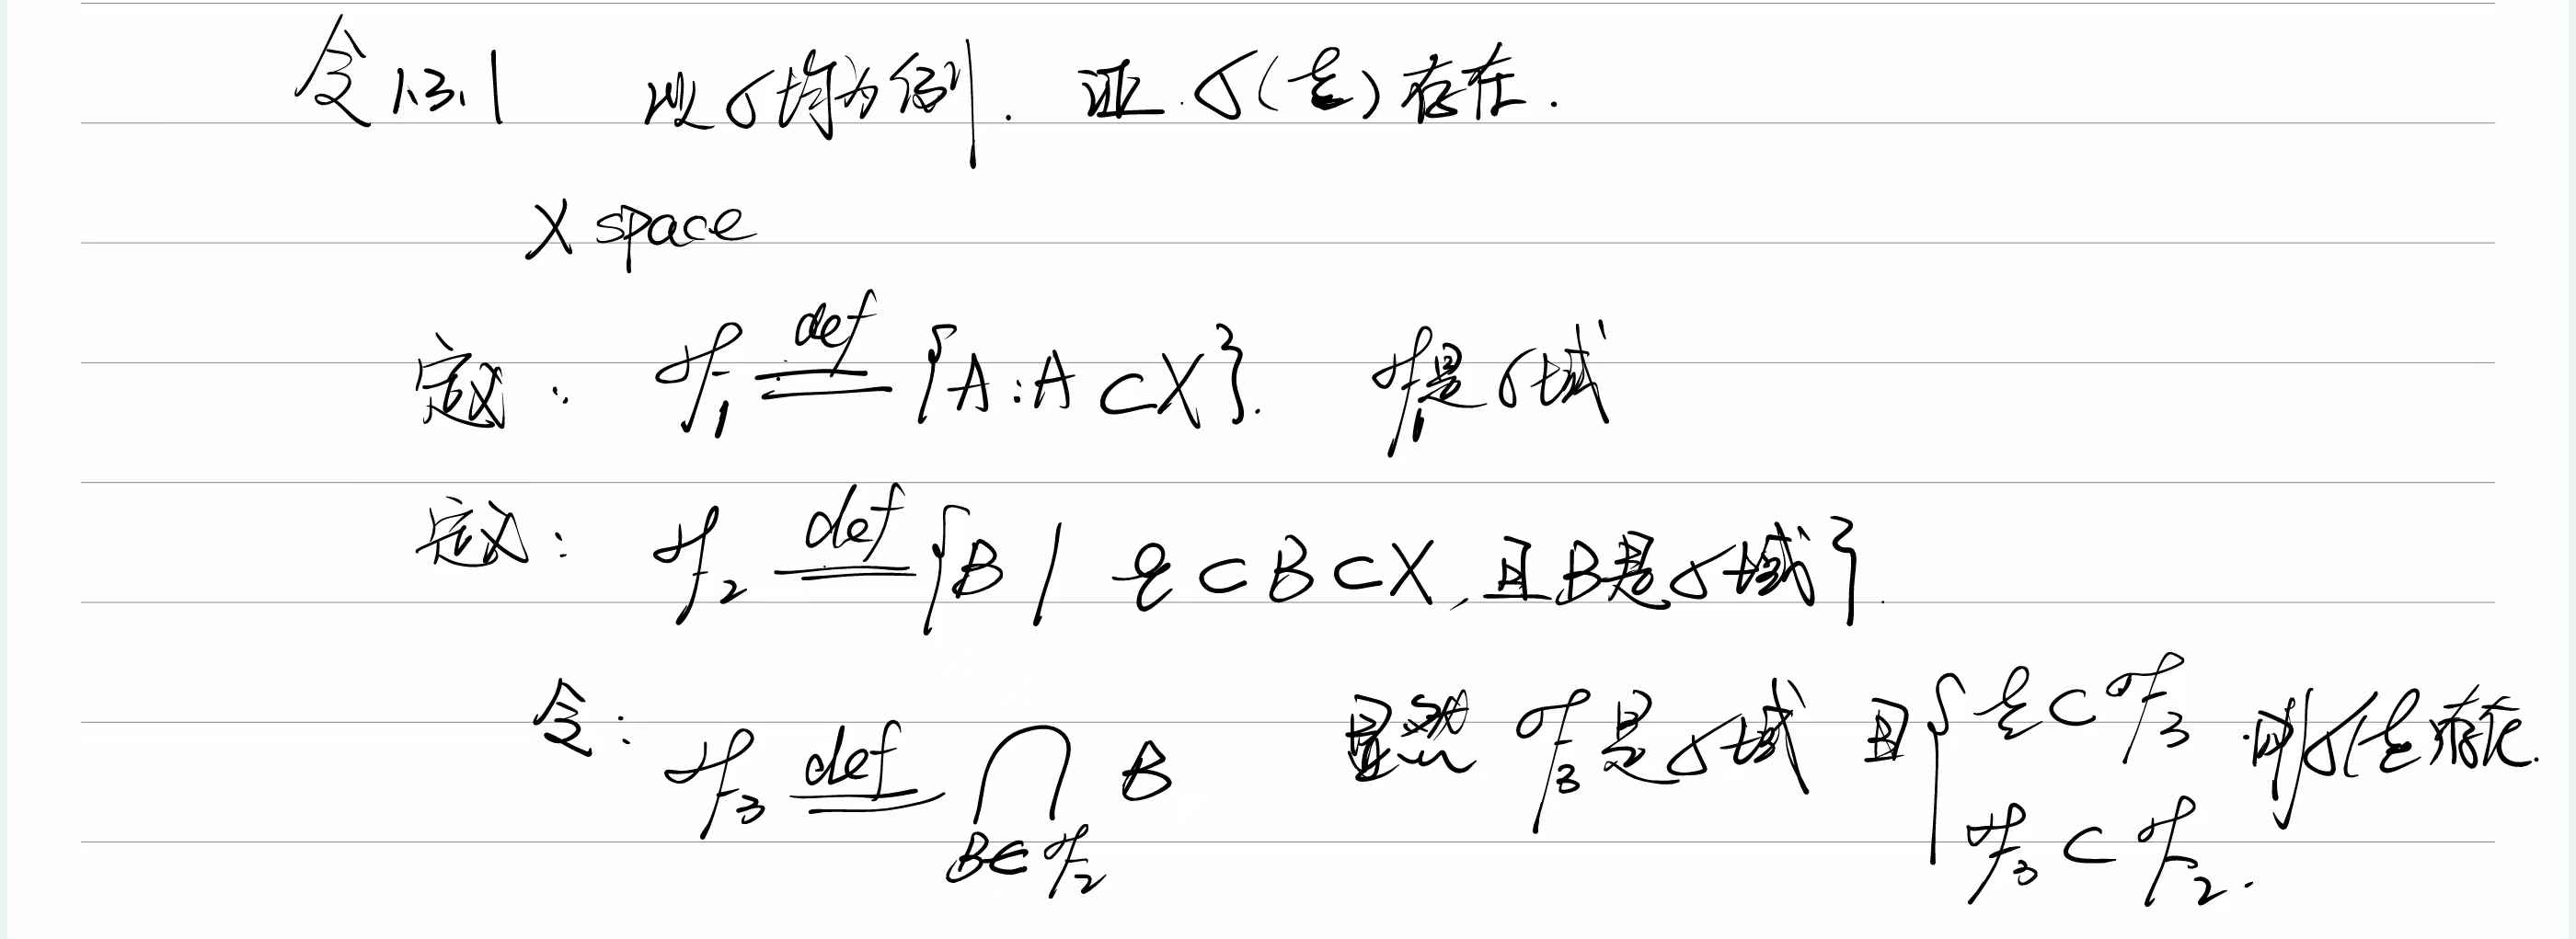 令1.3.1 以σ域为例. 证.σ(ℰ)存在.
X space
定义: ℱ₁ def {A:A⊂X}. ℱ₁是σ域
定义: ℱ₂ def {B | ℰ⊂B⊂X,且B是σ域}.
令: ℱ₃ def ⋂ B 显然 ℱ₃是σ域 且{ℰ⊂ℱ₃ 则σ(ℰ)存在.
B∈ℱ₂ ℱ₃⊂ℱ₂.